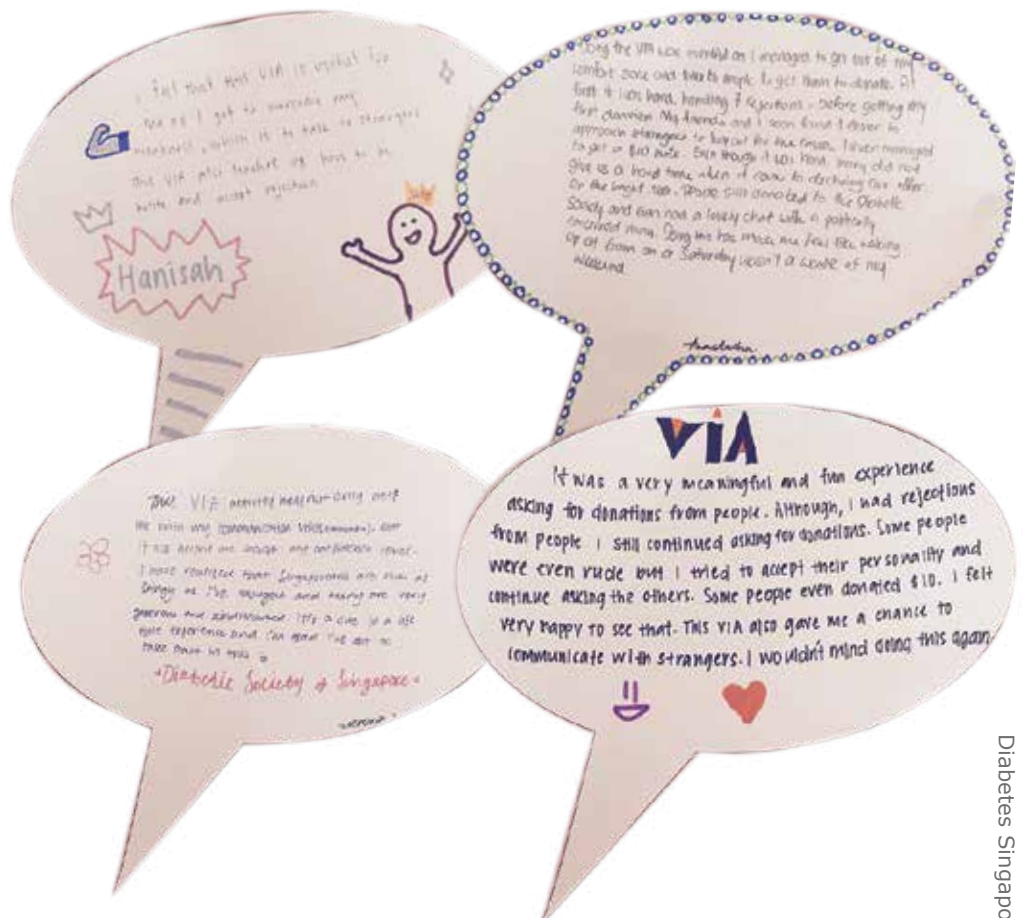 I feel that this VIA is useful for
me as I get to overcome my
weakness, which is to talk to strangers
This VIA also teaches us how to be
polite and accept rejection
Hanisah
Doing the VIA was eventful as I managed to get out of my
comfort zone and talk to people to get them to donate. At
first it was hard, handling 7 rejections before getting my
first donation. My friends and I soon found it easier to
approach strangers to support for the cause. I even managed
to get a $10 note. Even though it was hard, many did not
give us a hard time when it came to declining our offer.
On the bright side, people still donated to the Diabetic
Society and even had a lovely chat with a
man. Doing this has made me feel like waking
up at 6am on a Saturday wasn't a waste of my
weekend
This VIA activity has not only help
me with my communication but
it has helped me my confidence level.
I have realised that Singaporeans are not as
stingy as I've thought and many are very
generous and It's a once in a life
time experience and I'm glad I've got to
take part in this
Diabetic Society of Singapore
VIA
It was a very meaningful and fun experience
asking for donations from people. Although, I had rejections
from people I still continued asking for donations. Some people
were even rude but I tried to accept their personality and
continue asking the others. Some people even donated $10. I felt
very happy to see that. This VIA also gave me a chance to
communicate with strangers. I wouldn't mind doing this again
Diabetes Singapo